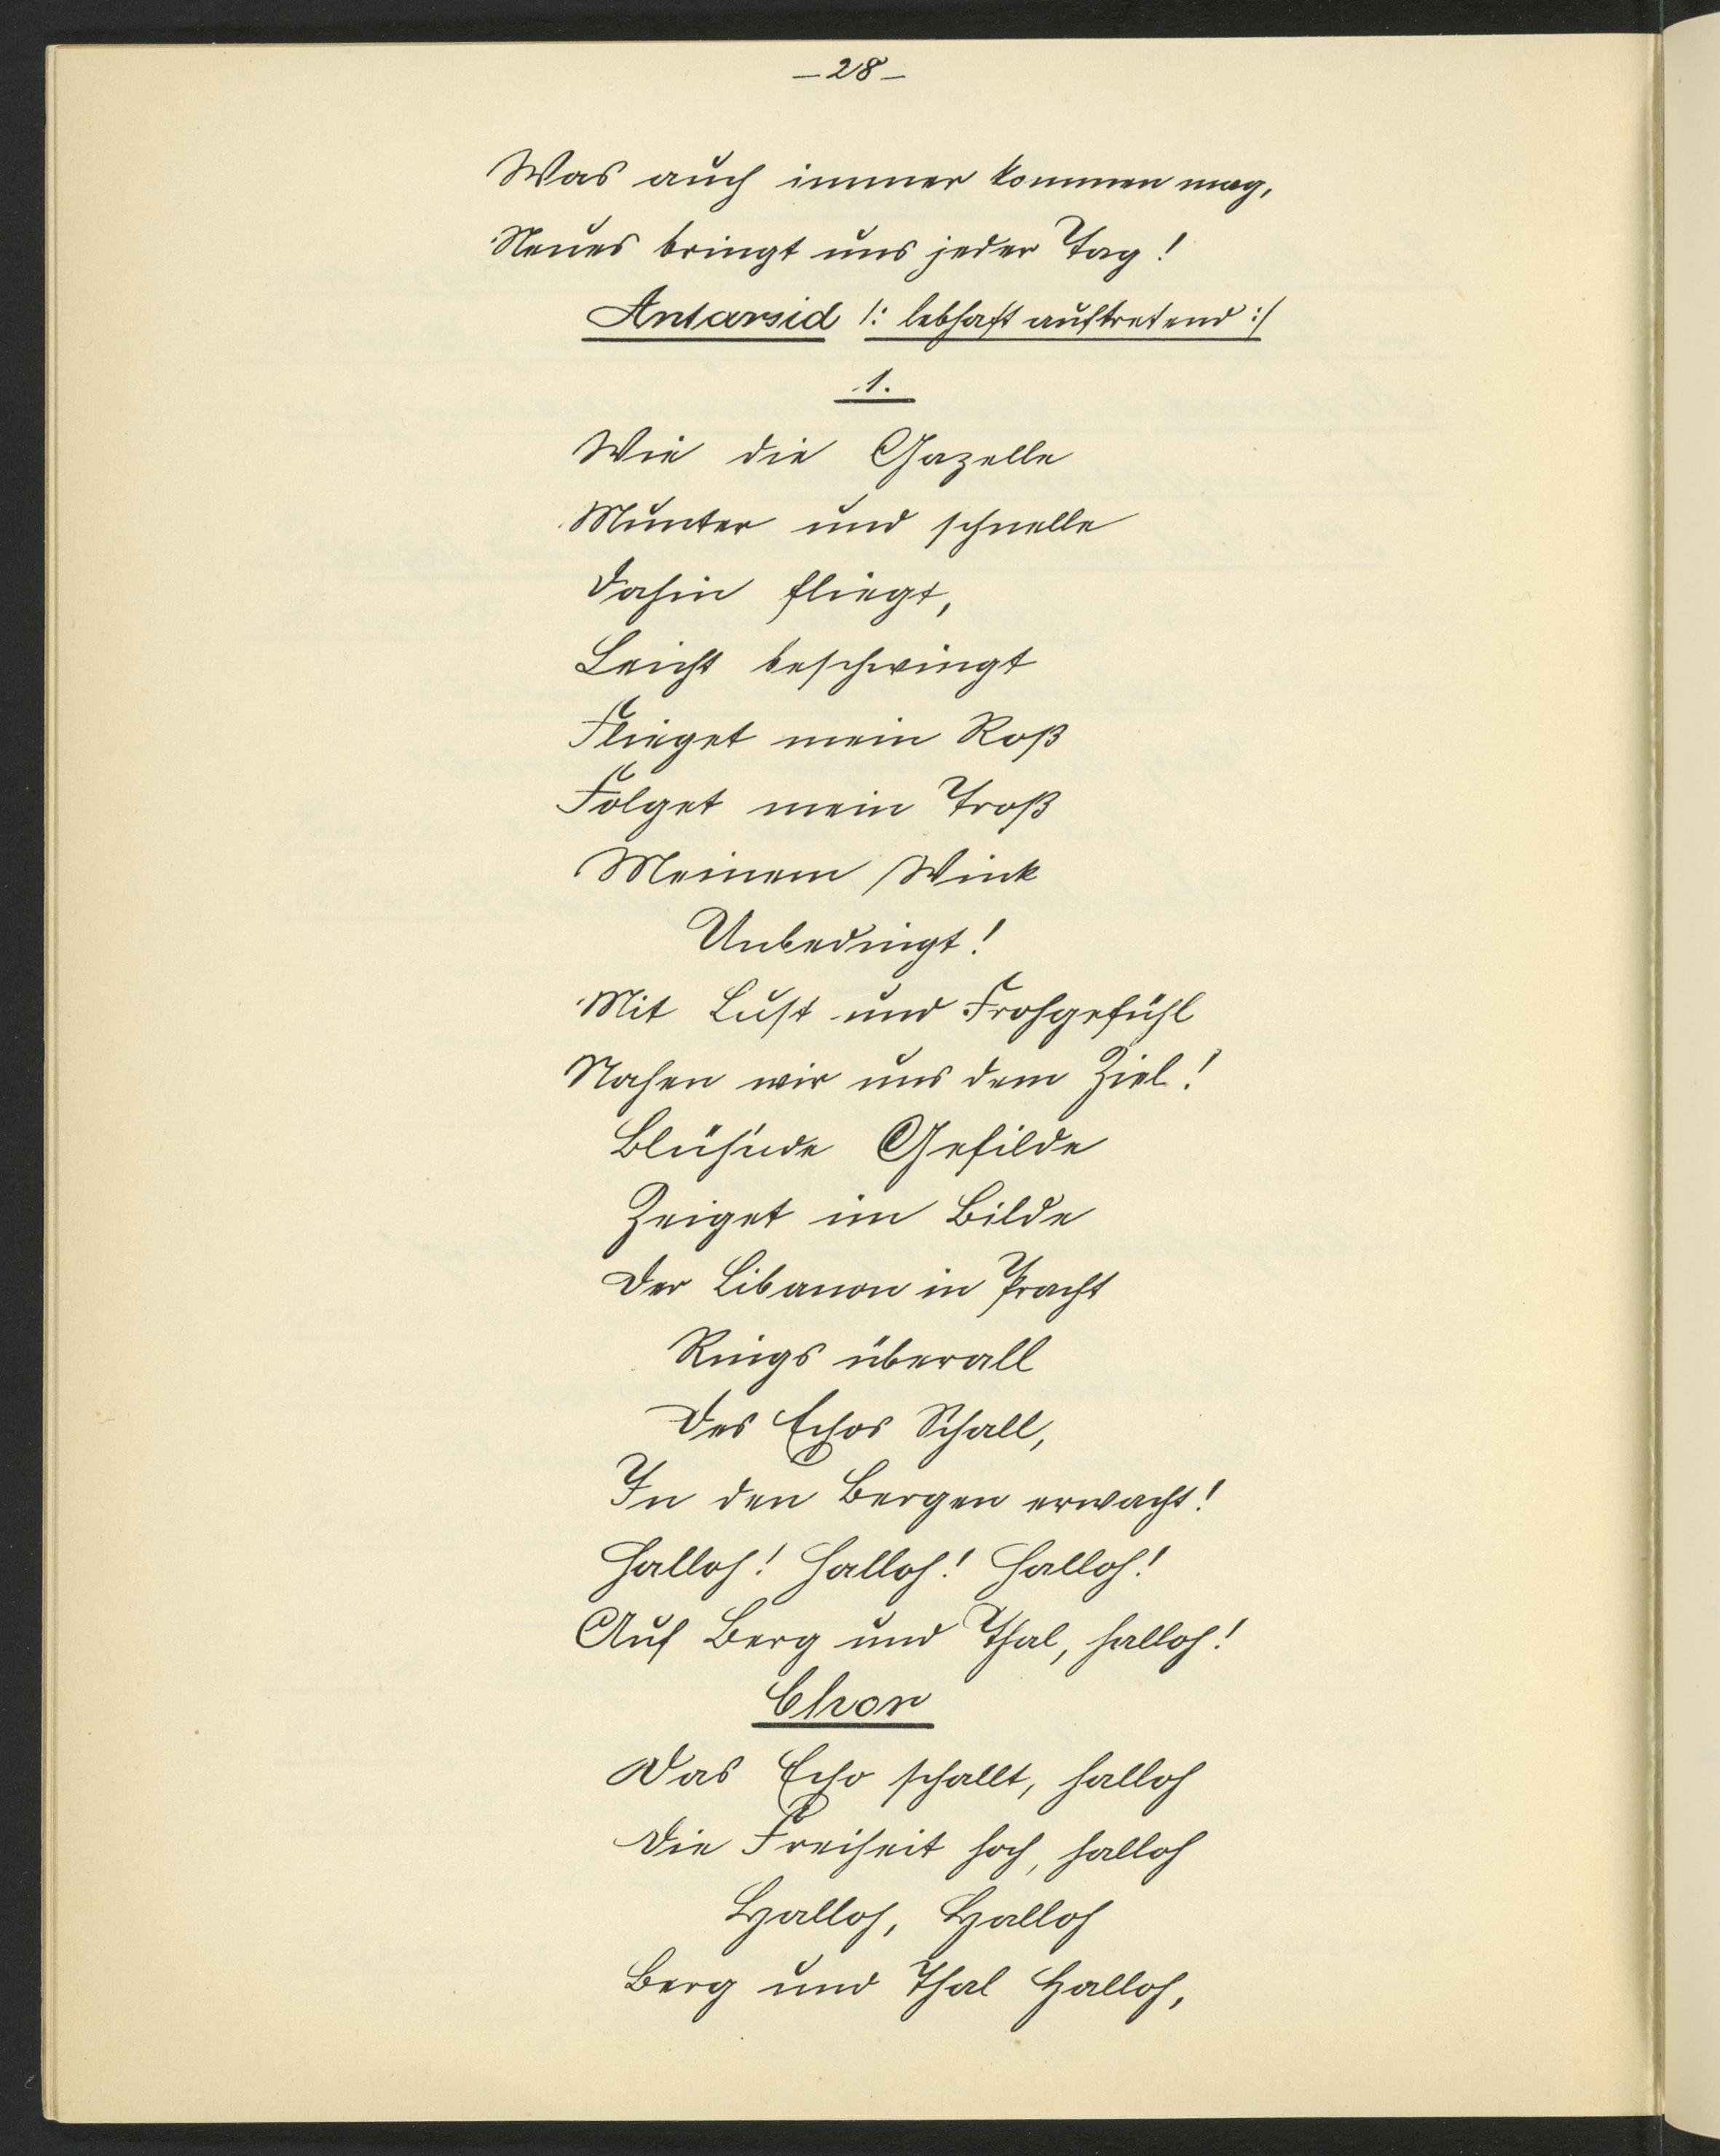 – 28 –
Was auch immer kommen mag,
Neues bringt uns jeder Tag!
Antarsid /: lebhaft auftretend :/
1.
Wie die Gazelle
Munter und schnelle
Dahin fliegt,
Leicht beschwingt
Flieget mein Roß
Folget mein Troß
Meinem Wink
Unbedingt!
Mit Lust und Frohgefühl
Nahen wir uns dem Ziel!
Blüh'nde Gefilde
Zeiget im Bilde
Der Libanon in Pracht
Rings überall
Des Echos Schall,
In den Bergen erwacht!
Halloh! Halloh! Halloh!
Auf Berg und Thal, halloh!
Chor
Das Echo schallt, halloh
Die Freiheit hoch, halloh
Halloh, Halloh
Berg und Thal Halloh,